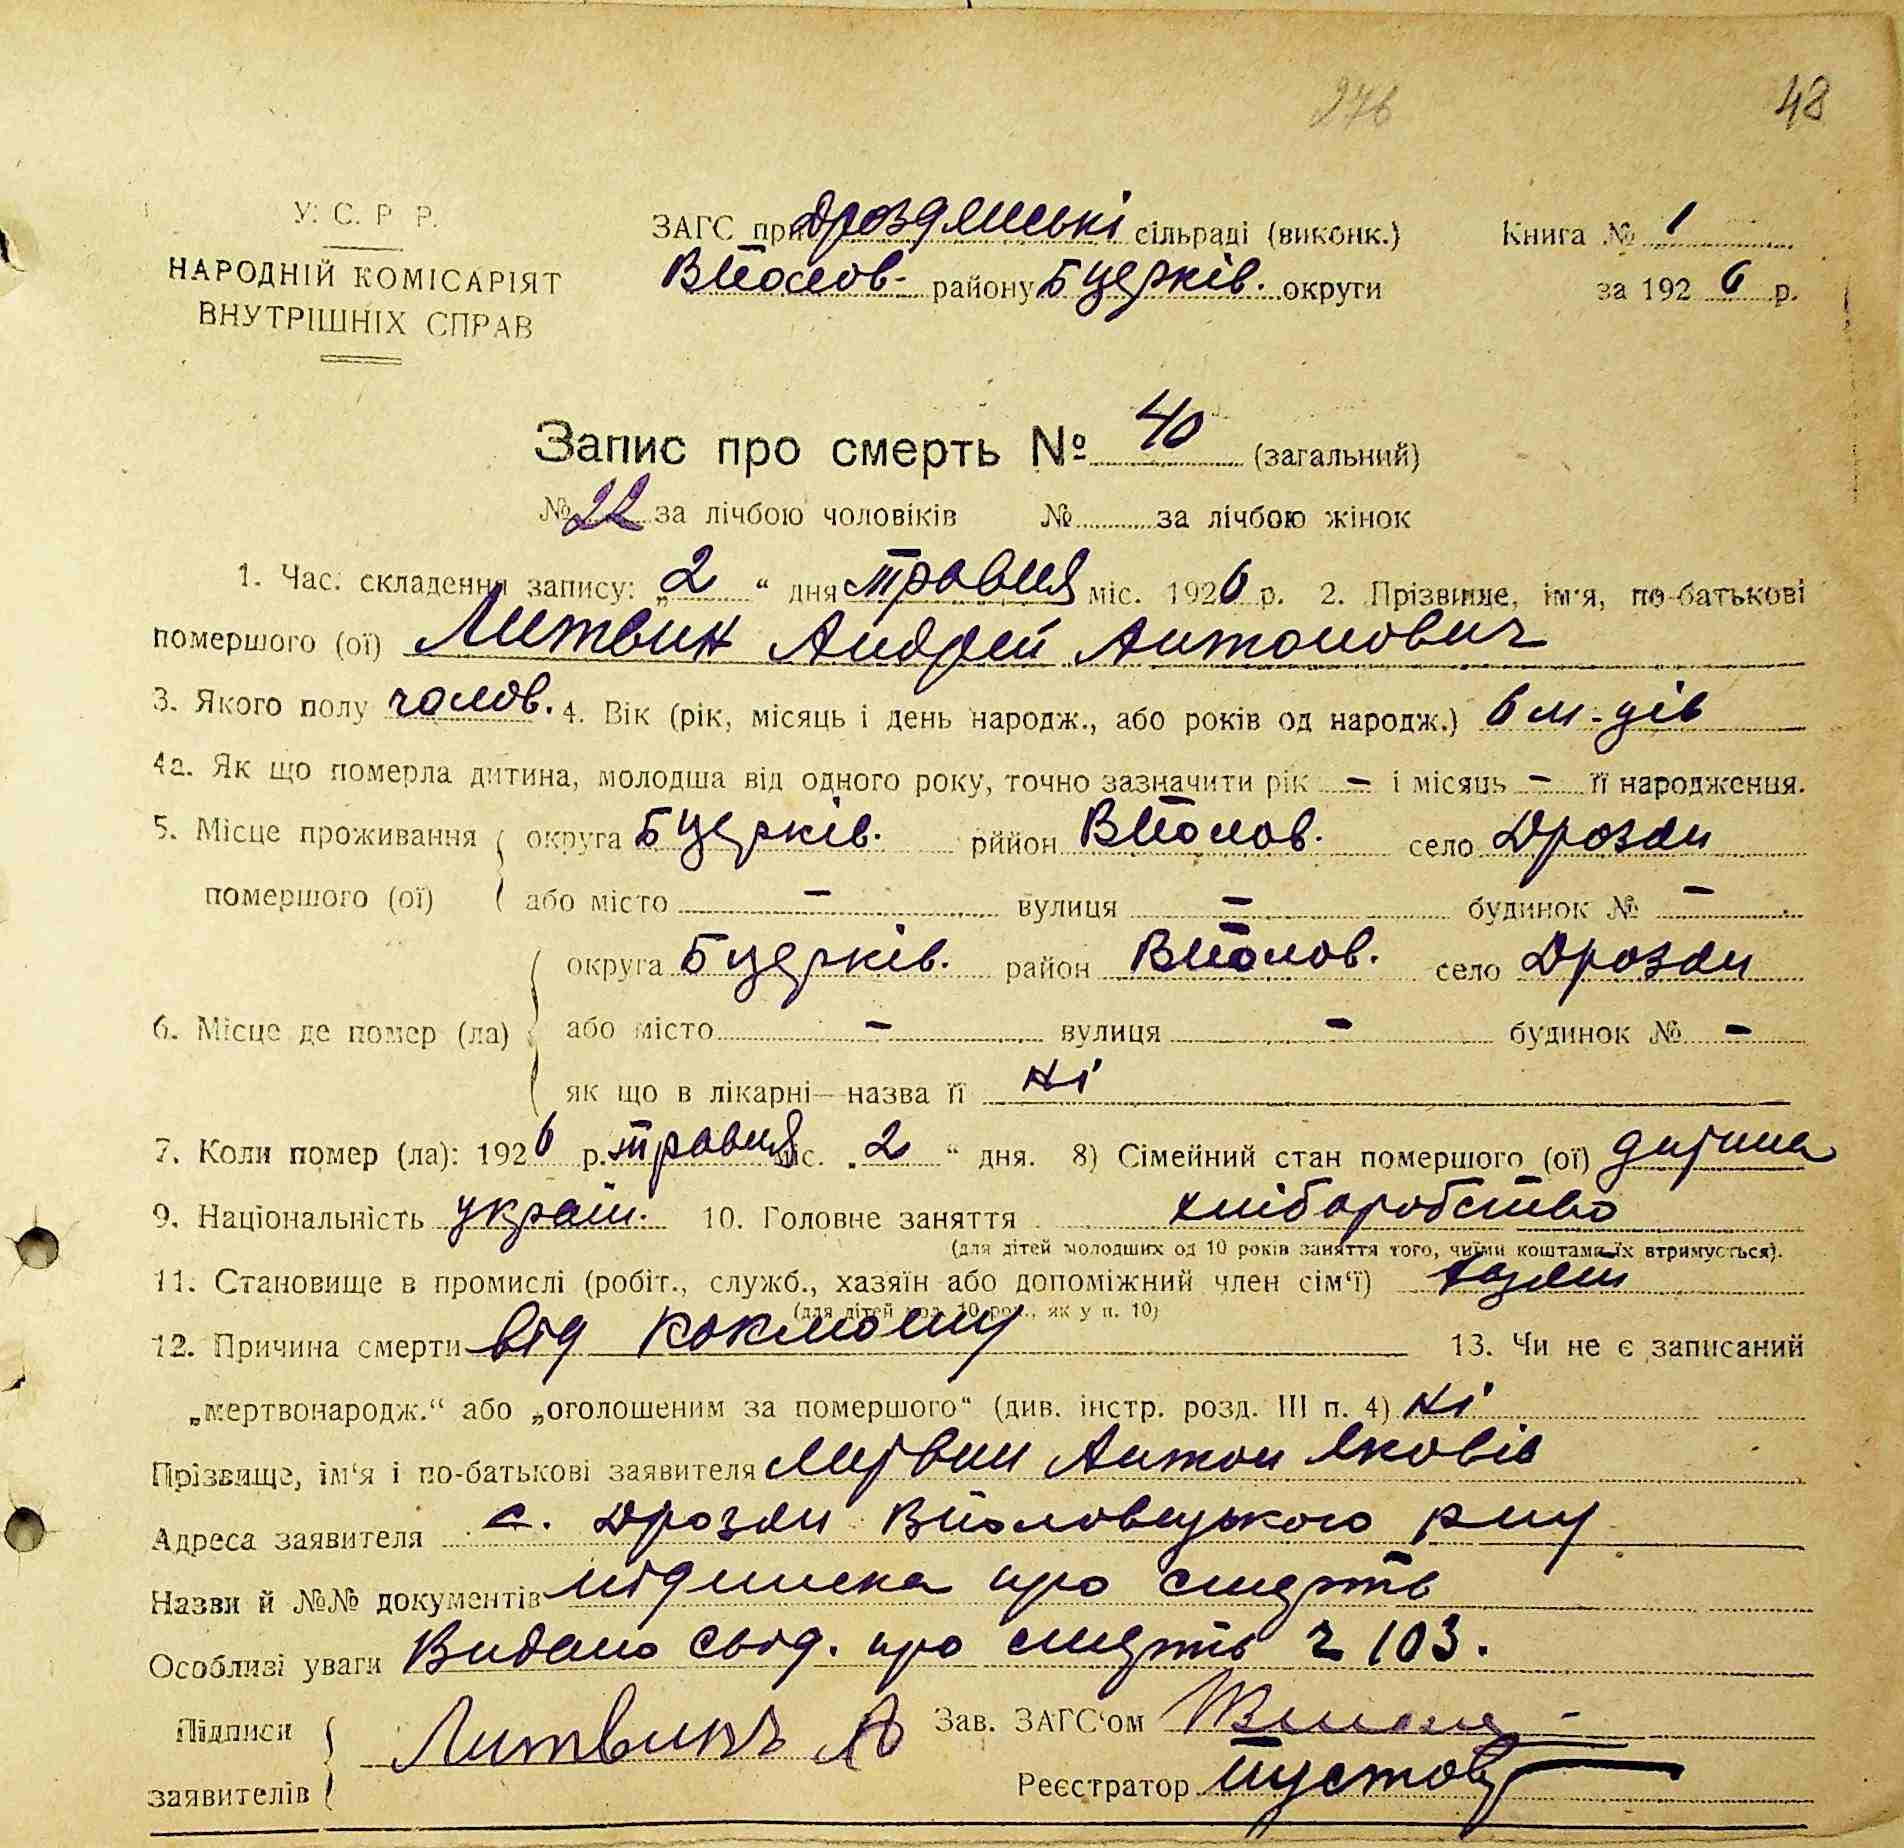 276 48
У. С. Р. Р.
НАРОДНІЙ КОМІСАРІЯТ
ВНУТРІШНІХ СПРАВ
ЗАГС при Дроздянські сільраді (виконк.) Книга № 1
Вполов- району Бцерків. округи за 1926 р.
Запис про смерть № 40 (загальний)
№ 22 за лічбою чоловіків № за лічбою жінок
1. Час складення запису: „2“ дня травня міс. 1926 р. 2. Прізвище, ім'я, по-батькові
помершого (ої) Литвин Андрей Антонович
3. Якого полу чолов. 4. Вік (рік, місяць і день народж., або років од народж.) 6 м-ців
4а. Як що померла дитина, молодша від одного року, точно зазначити рік - і місяць - її народження.
5. Місце проживання округа Бцерків. рийон Вполов. село Дрозди
помершого (ої) або місто - вулиця - будинок № -
округа Бцерків. район Вполов. село Дрозди
6. Місце де помер (ла) або місто - вулиця - будинок № -
як що в лікарні—назва її ні
7. Коли помер (ла): 1926 р. травня міс. „2“ дня. 8) Сімейний стан помершого (ої) дитина
9. Національність україн. 10. Головне заняття хліборобство
(для дітей молодших од 10 років заняття того, чиїми коштами їх втримується).
11. Становище в промислі (робіт., служб., хазяїн або допоміжний член сім'ї) хазяїн
(для дітей мол. 10 рок., як у п. 10)
12. Причина смерти від коклюшу 13. Чи не є записаний
„мертвонародж.“ або „оголошеним за помершого“ (див. інстр. розд. III п. 4) ні
Прізвище, ім'я і по-батькові заявителя Литвин Антон Яковів
Адреса заявителя с. Дрозди Вполовецького р-ну
Назви й №№ документів підписка про смерть
Особливі уваги Видано свід. про смерть ч 103.
Підписи Литвинъ А Зав. ЗАГС'ом
заявителів Реєстратор